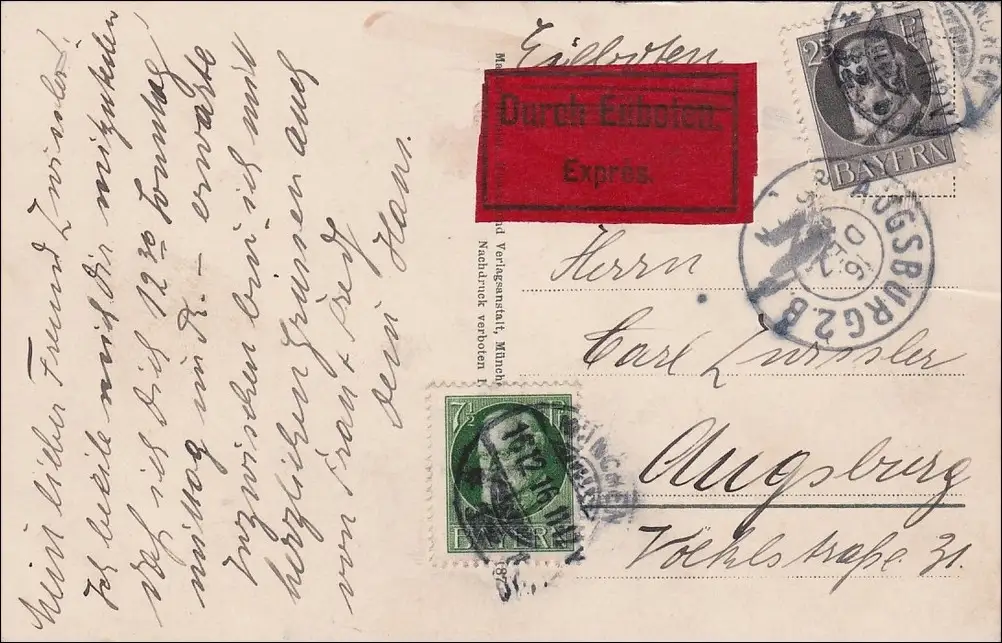 Mein lieber Freund Zwissler!
Ich beeile mich dir mitzuteilen
daß ich dich 12 30 Sonntag
mittag
erwarte
Inzwischen bin ich mit
herzlichen Grüssen auch
von Frau +
dein Hans.
Eilboten
Durch Eilboten.
Exprès.
und Verlagsanstalt, Münche
Nachdruck verboten
Herrn
Carl Zwissler
Augsburg
Völkstraße 31.
25 P
BAYERN
MÜNCHEN
AUGSBURG 2. B
16 DEZ
7½
BAYERN
MÜNCHEN
16.12.16